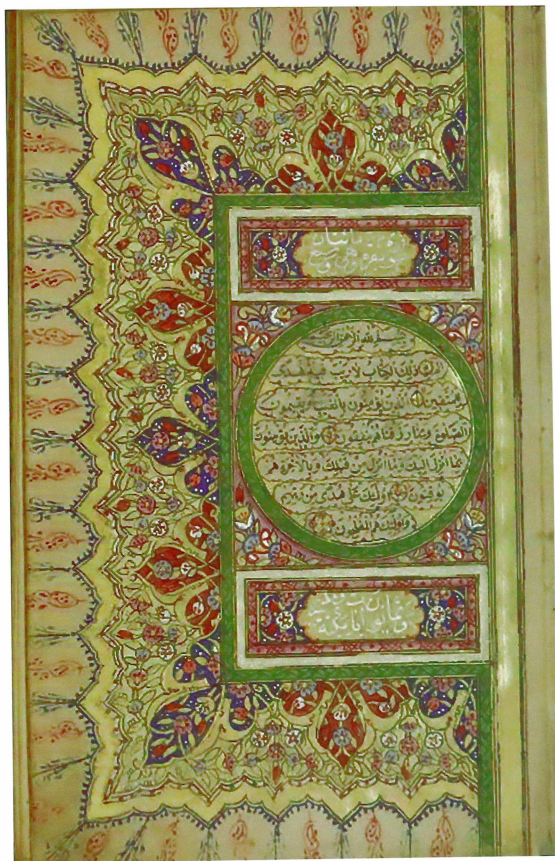 بسم الله الرحمن الرحيم
الم ذلك الكتاب لا ريب فيه هدى
للمتقين الذين يؤمنون بالغيب ويقيمون
الصلوة ومما رزقناهم ينفقون والذين يؤمنون
بما انزل اليك وما انزل من قبلك وبالاخرة هم
يوقنون اولئك على هدى من ربهم
واولئك هم المفلحون